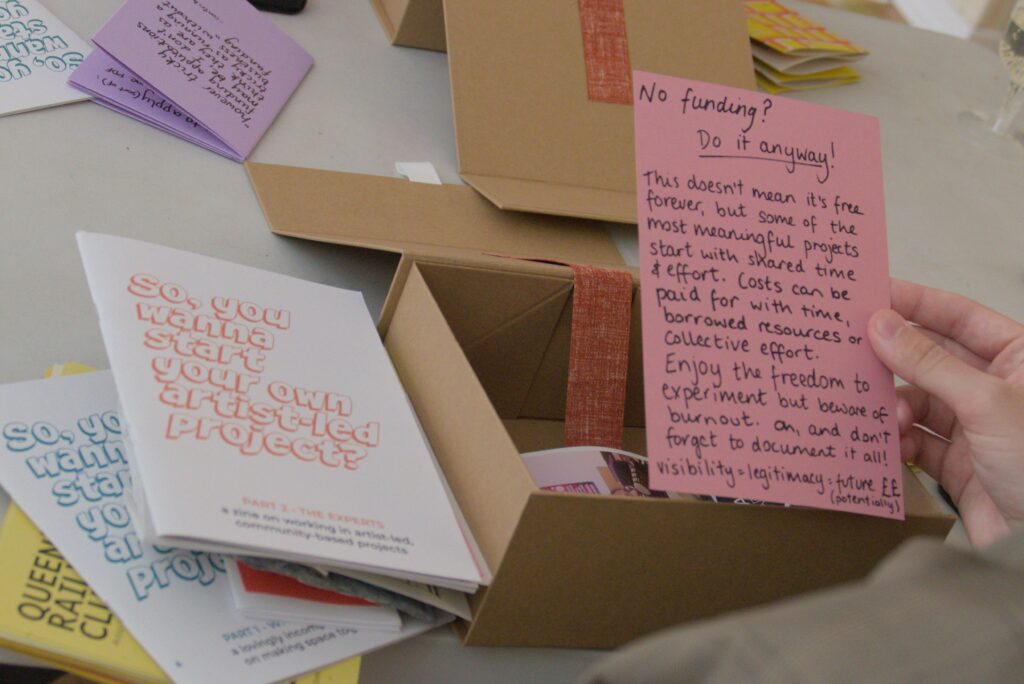 No funding?
Do it anyway!
This doesn't mean it's free
forever, but some of the
most meaningful projects
start with shared time
& effort. Costs can be
paid for with time,
borrowed resources or
collective effort.
Enjoy the freedom to
experiment but beware of
burnout. Oh, and don't
forget to document it all!
visibility = legitimacy = future ££
(potentially)
So, you
wanna
start
your own
artist-led
project?
PART 2 - THE EXPERTS
a zine on working in artist-led,
community-based projects
So, yo
wann
sta
yo
a
proje
PART 1 - W
a lovingly incom
on making space to
QUEEN
RAIL
CL
"however
funding
may be